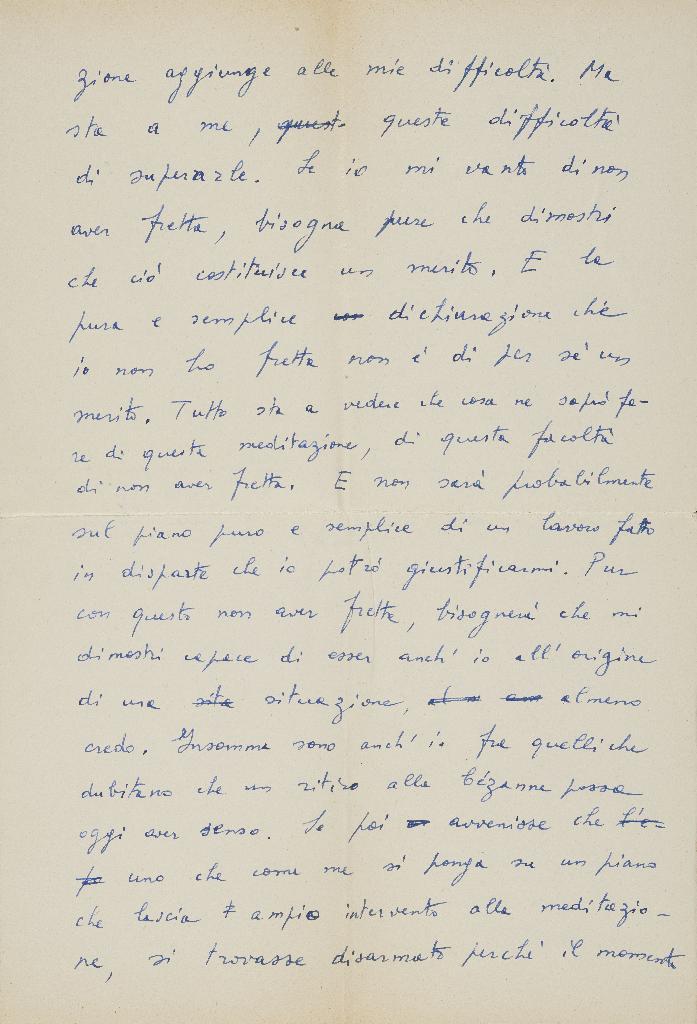 zione aggiunge alle mie difficoltà. Ma
sta a me, queste difficoltà
di superarle. Se io mi vanto di non
aver fretta, bisogna pure che dimostri
che ciò costituisce un merito. E la
pura e semplice dichiarazione che
io non ho fretta non è di per sé un
merito. Tutto sta a vedere che cosa ne saprò fa-
re di questa meditazione, di questa facoltà
di non aver fretta. E non sarà probabilmente
sul piano puro e semplice di un lavoro fatto
in disparte che io potrò giustificarmi. Pur
con questo non aver fretta, bisognerà che mi
dimostri capace di esser anch'io all'origine
di una situazione, almeno
credo. Insomma sono anch'io fra quelli che
dubitano che un ritiro alla Cézanne possa
oggi aver senso. Se poi avvenisse che
uno che come me si ponga su un piano
che lascia ampio intervento alla meditazio-
ne, si trovasse disarmato perché il momento